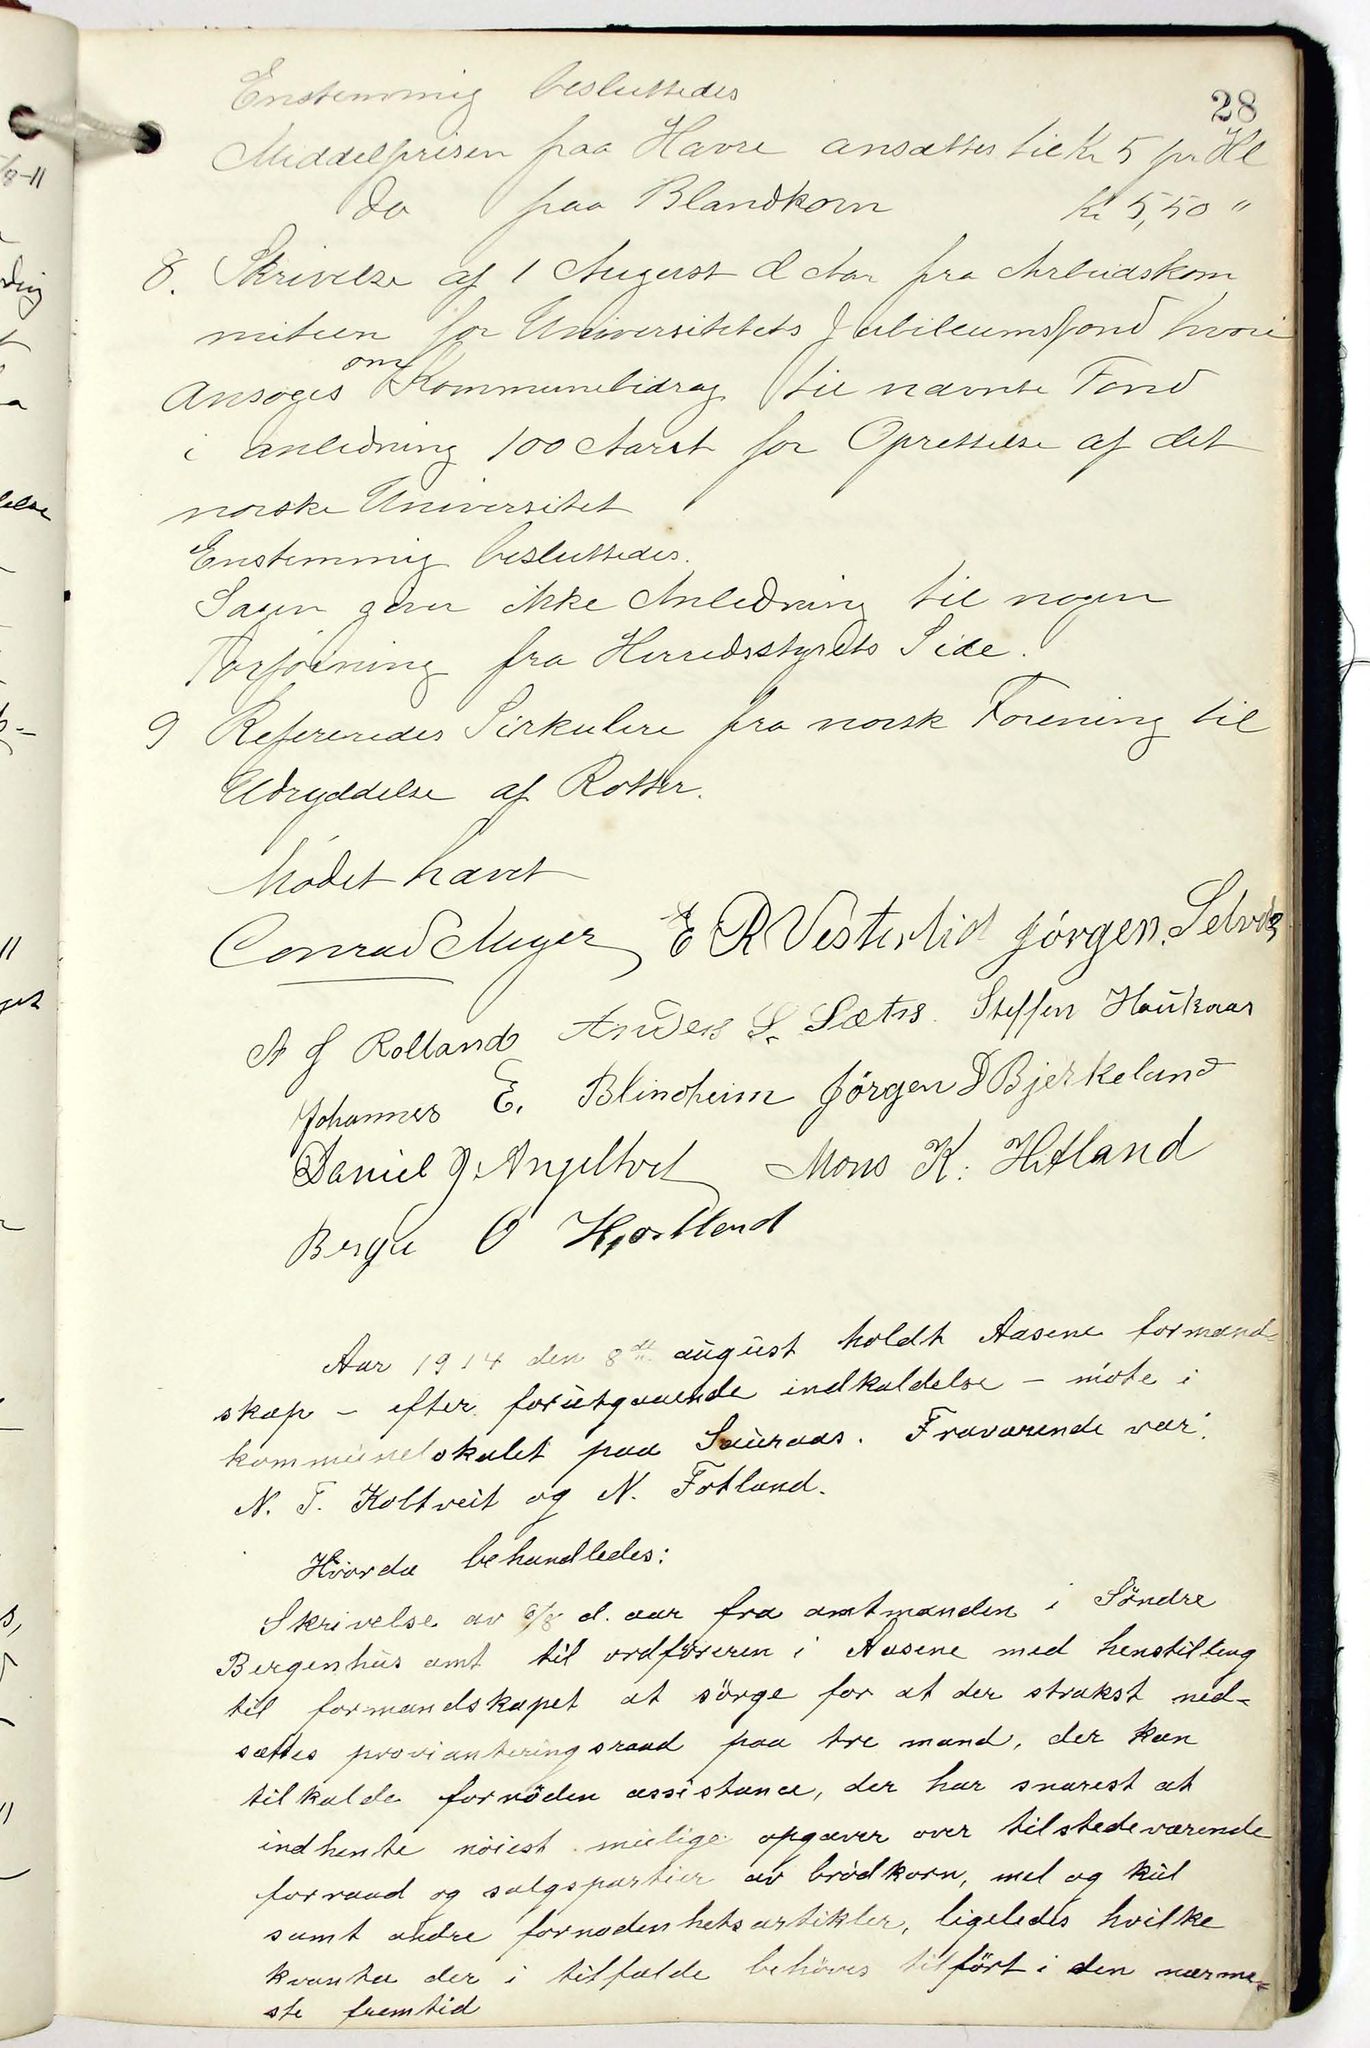 28
Enstemmig besluttedes
Middelprisen paa Havre ansættes til Kr 5 pr Hl
do paa Blandkorn Kr 5,50 "
8. Skrivelse af 1 August d Aar fra Arbeidskom
miteen for Universitetets Jubileumsfond hvori
ansøges om Kommunebidrag til nævnte Fond
i anledning 100 Aaret for Oprettelse af det
norske Universitet
Enstemmig besluttedes.
Sagen giver ikke Anledning til nogen
Forføining fra Herredsstyrets Side.
9 Refereredes Sirkulere fra norsk Forening til
Udryddelse af Rotter.
Mødet hævet
Conrad Meyer E R Vestertid Jörgen Selvik
A J Rolland Anders L. Sætre Steffen Haukaas
Johannes E. Blindheim Jörgen D Bjerkeland
Daniel J. Angeltvet Mons K. Hitland
Berge O Hjortland
Aar 1914 den 8de august holdt Aasene formand-
skap - efter forutgaaende indkaldelse - möte i
kommunelokalet paa Sauraas. Fraværende var:
N. T. Koltveit og N. Fotland.
Hvorda behandledes:
Skrivelse av 6/8 d. aar fra amtmanden i Söndre
Bergenhus amt til ordföreren i Aasene med henstilling
til formandskapet at sörge for at der strakst ned-
sættes provianteringsraad paa tre mand, der kan
tilkalde fornöden assistance, der har snarest at
indhente nöiest mulige opgaver over tilstedeværende
forraad og salgspartier av brödkorn, mel og kul
samt andre fornødenhetsartikler, ligeledes hvilke
kvanta der i tilfælde behöves tilfört i den nærme-
ste fremtid